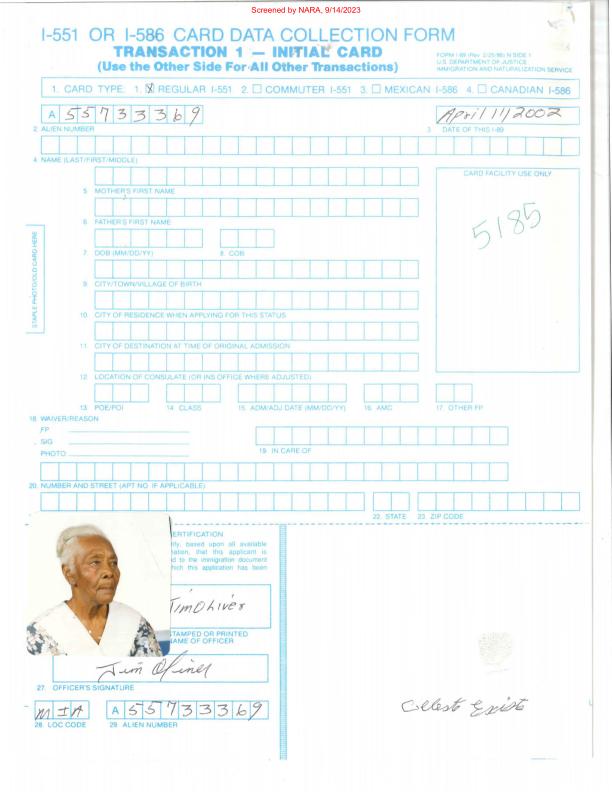 Screened by NARA, 9/14/2023
I-551 OR I-586 CARD DATA COLLECTION FORM
TRANSACTION 1 — INITIAL CARD
(Use the Other Side For All Other Transactions)
FORM I-89 (Rev. 2/25/86) N SIDE 1
U.S. DEPARTMENT OF JUSTICE
IMMIGRATION AND NATURALIZATION SERVICE
1. CARD TYPE: 1. X REGULAR I-551 2. COMMUTER I-551 3. MEXICAN I-586 4. CANADIAN I-586
A 55733369 April 11, 2002
2. ALIEN NUMBER 3. DATE OF THIS I-89
4. NAME (LAST/FIRST/MIDDLE)
CARD FACILITY USE ONLY
5185
5. MOTHER'S FIRST NAME
6. FATHER'S FIRST NAME
7. DOB (MM/DD/YY) 8. COB
STAPLE PHOTO/OLD CARD HERE
9. CITY/TOWN/VILLAGE OF BIRTH
10. CITY OF RESIDENCE WHEN APPLYING FOR THIS STATUS
11. CITY OF DESTINATION AT TIME OF ORIGINAL ADMISSION
12. LOCATION OF CONSULATE (OR INS OFFICE WHERE ADJUSTED)
13. POE/POI 14. CLASS 15. ADM/ADJ DATE (MM/DD/YY) 16. AMC 17. OTHER FP
18. WAIVER/REASON
FP
SIG
PHOTO
19. IN CARE OF
20. NUMBER AND STREET (APT NO. IF APPLICABLE)
22. STATE 23. ZIP CODE
ERTIFICATION
ify, based upon all available
nation, that this applicant is
ed to the immigration document
hich this application has been
Tim Oliver
STAMPED OR PRINTED
NAME OF OFFICER
Jim Oliver
27. OFFICER'S SIGNATURE
MIA A 55733369
28. LOC CODE 29. ALIEN NUMBER
Celeste Exists